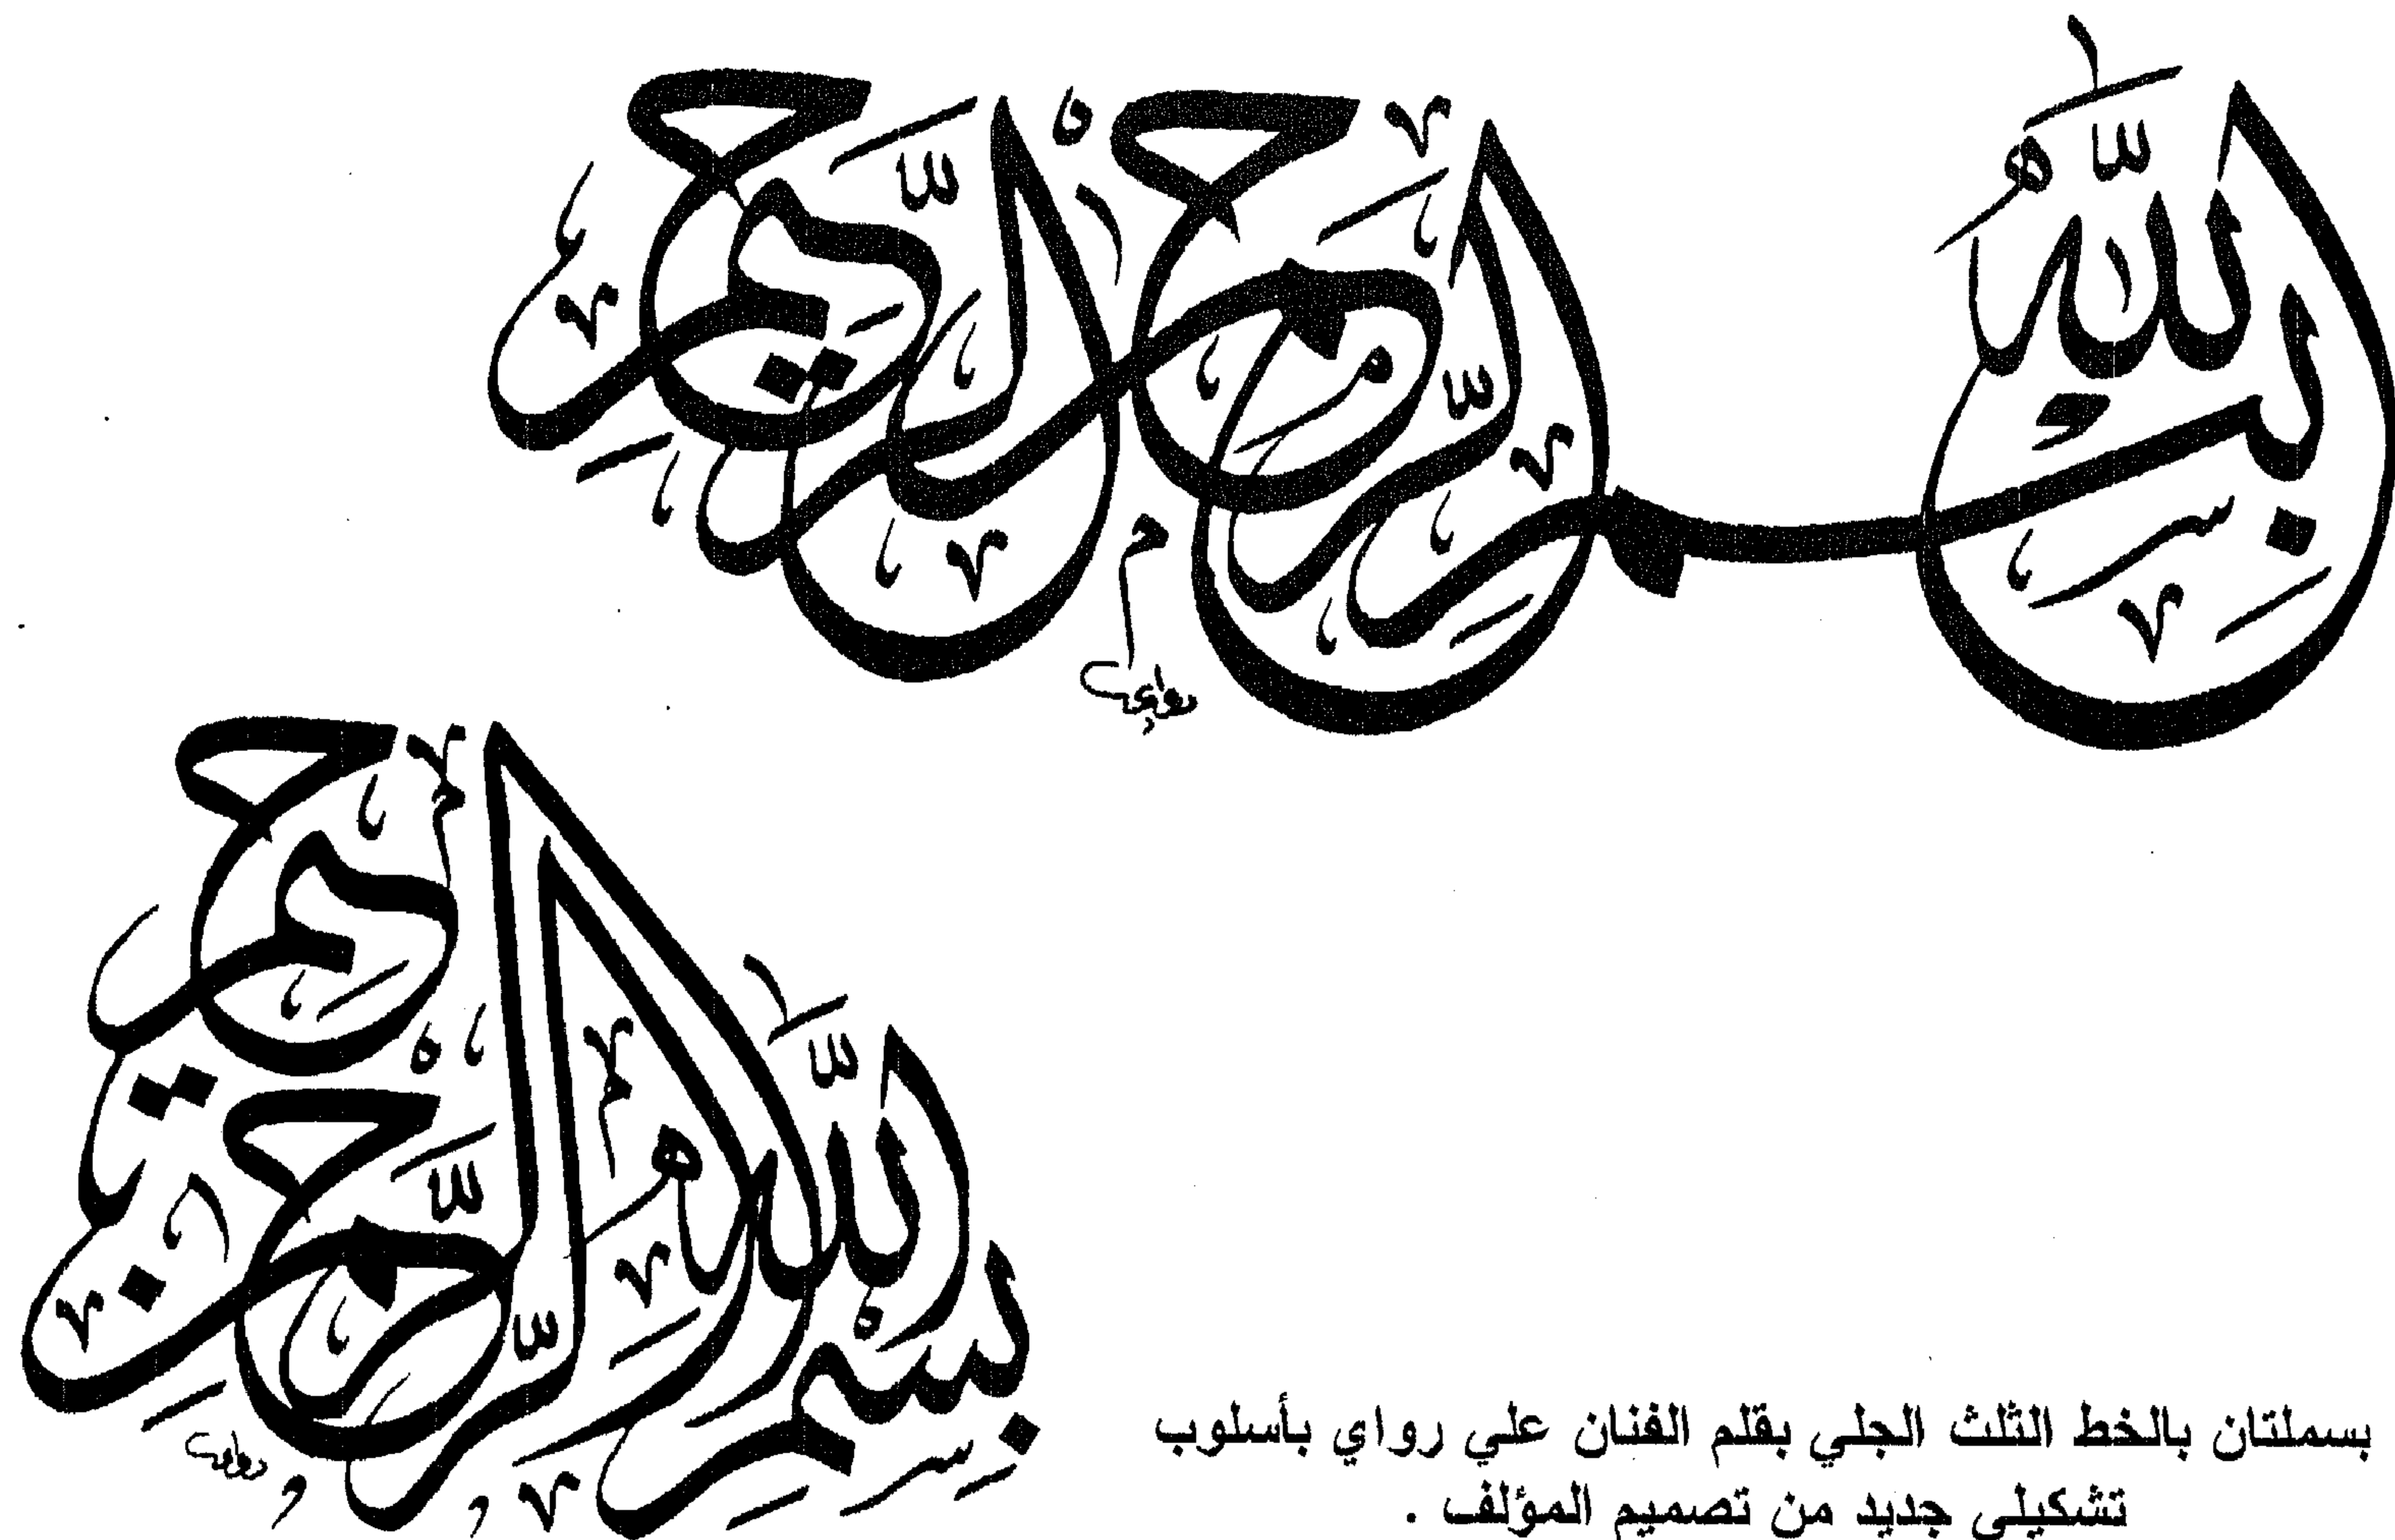 بسم الله الرحمن الرحيم
رواي
بسم الله الرحمن الرحيم
رواي
بسملتان بالخط الثلث الجلي بقلم الفنان علي رواي بأسلوب
تشكيلي جديد من تصميم المؤلف .